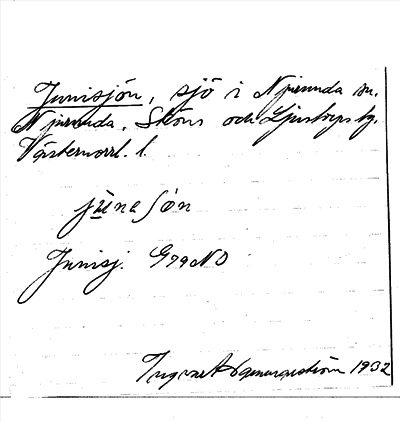 Junisjön, sjö i Njurunda sn.
Njurunda, Sköns och Ljustorps tg.
Västernorrl. l.
jùnesón
Junisj. G99NO
Ingvar 1932